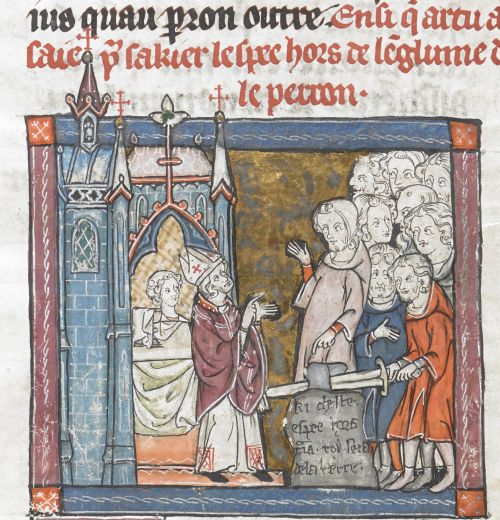 ius quau pron outre. Ensi q̃ artu a
saie p̃ sakier lespee hors de leglume d
le perron.
ki cheste
espee
t̃ra.
dela terre.